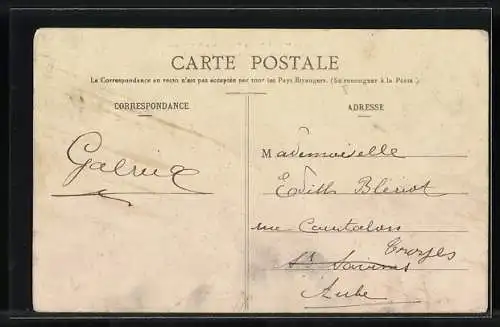 CARTE POSTALE
La Correspondance au recto n'est pas acceptée par tous les Pays Etrangers. (Se renseigner à la Poste)
CORRESPONDANCE
ADRESSE
Mademoiselle
Edith
rue
Troyes
Aube